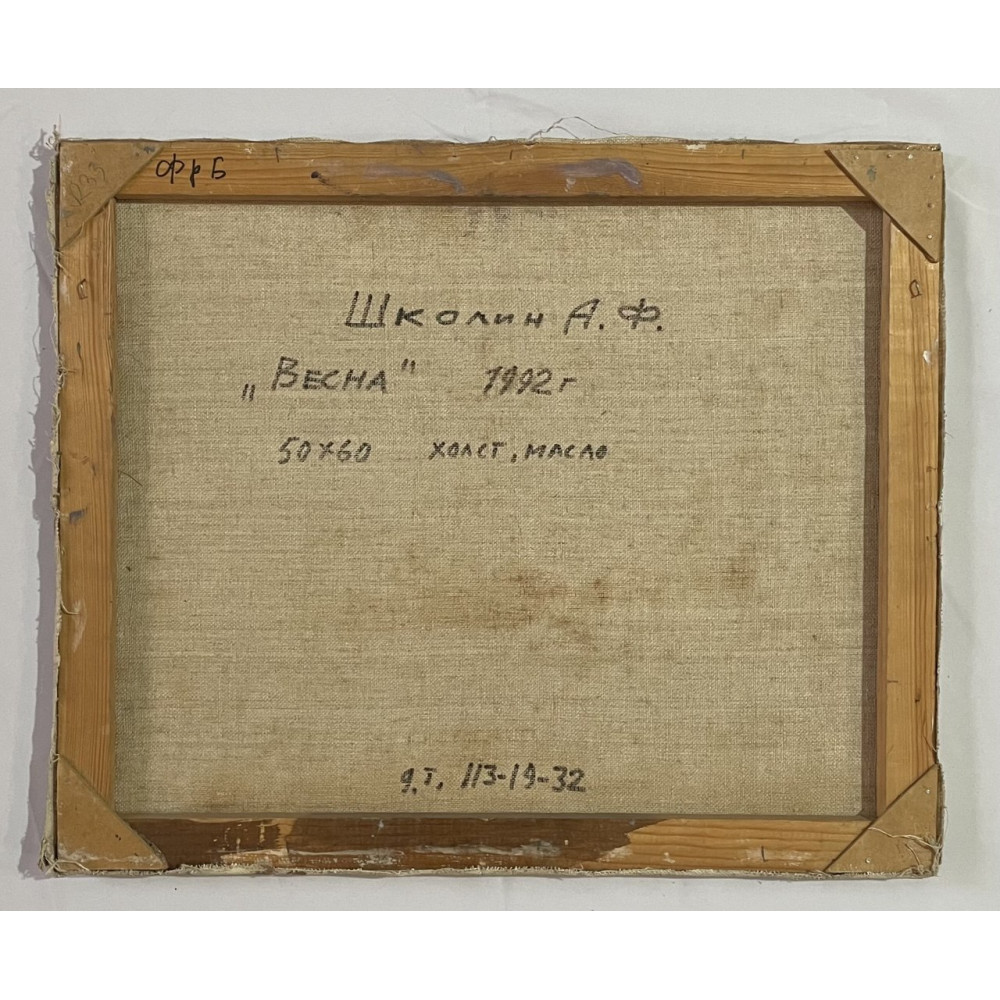 ФрБ
Школин А. Ф.
„Весна" 1992 г
50x60 холст, масло
д.т. 113-19-32